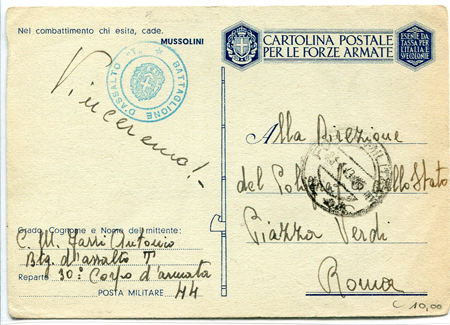 Nel combattimento chi esita, cade.
MUSSOLINI
BATTAGLIONE D'ASSALTO "T"
Vinceremo!
CARTOLINA POSTALE
PER LE FORZE ARMATE
ESENTE DA
TASSA PER
L'ITALIA
E COLONIE
Alla Direzione
del Poligrafico dello Stato
Piazza Verdi
Roma
Grado, Cognome e Nome del mittente:
C. M. Antonio
Btg. d'assalto T
Reparto 30° Corpo d'armata
POSTA MILITARE 44
10,00